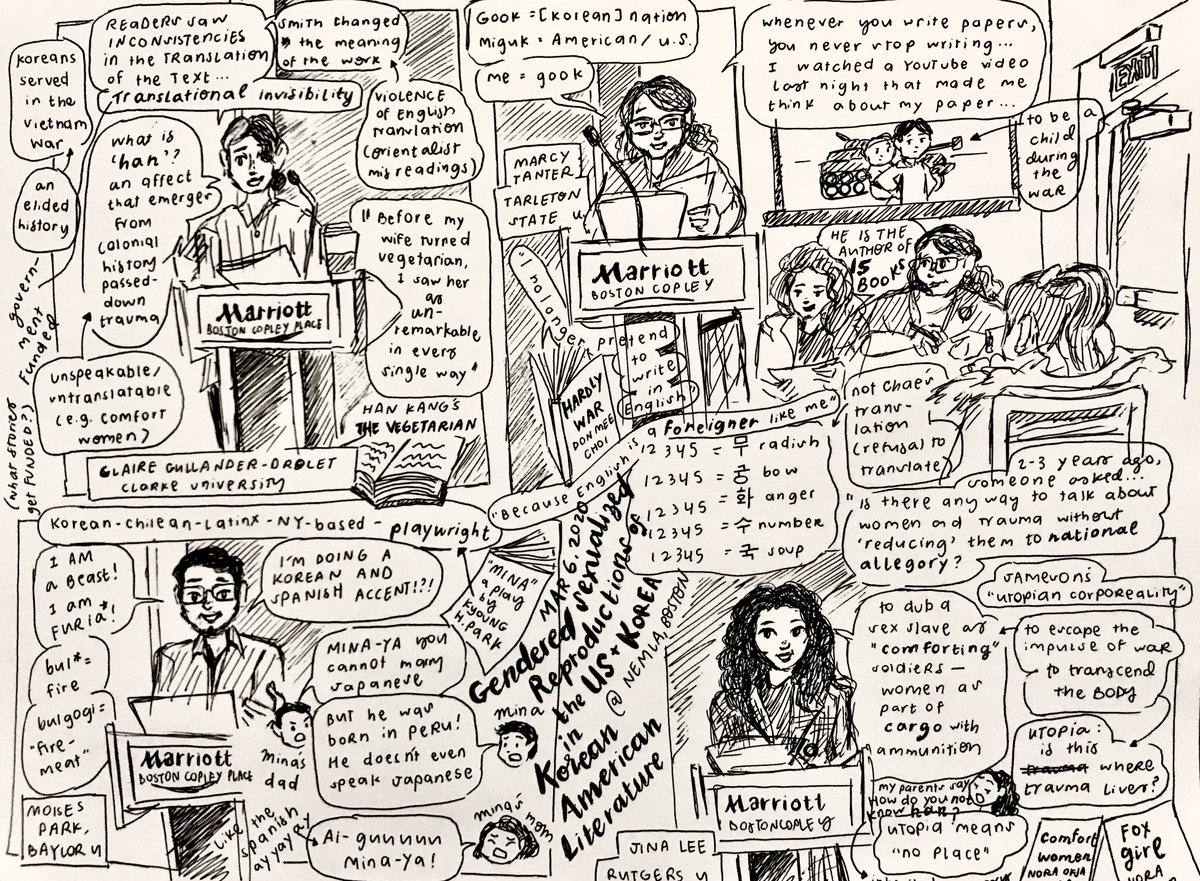 Koreans
served
in the
Vietnam
War
an
elided
history
government
funded
(what stories
get funded?)
READERS SAW
INCONSISTENCIES
in the TRANSLATION
of the Text...
Translational invisibility
Smith changed
the meaning
of the work
VIOLENCE
OF ENGLISH
Translation
(orientalist
misreadings)
what is
'han'?
an affect
that emerges
from
colonial
history
passed-
down
trauma
unspeakable/
untranslatable
(e.g. comfort
women)
"Before my
wife turned
vegetarian,
I saw her
as
un-
remarkable
in every
single way"
Marriott
BOSTON COPLEY PLACE
HAN KANG'S
THE VEGETARIAN
CLARKE UNIVERSITY
Gook = [Korean] nation
Miguk = American/U.S.
me = gook
MARCY
TANTER
TARLETON
STATE U
Marriott
BOSTON COPLEY
"I no longer
pretend
to
write
in
English
HARDLY
WAR
DON MEE
CHOI
"Because English is
a foreigner like me"
whenever you write papers,
you never stop writing...
I watched a YouTube video
last night that made me
think about my paper...
EXIT
to be a
child
during
the
war
HE IS THE
AUTHOR OF
15
BOOKS
12345 = 무 radish
12345 = 공 bow
12345 = 화 anger
12345 = 수 number
12345 = 국 soup
not Chae's
trans-
lation
(refusal) to
translate
2-3 years ago,
someone asked...
"is there any way to talk about
women and trauma without
'reducing' them to national
allegory?
Korean-Chilean-Latinx-NY-based-
playwright
I AM
a Beast!
I am
FURIA*!
bul*=
fire
bulgogi=
"fire-
meat"
I'M DOING A
KOREAN AND
SPANISH ACCENT!?!
MINA-YA you
cannot marry
Japanese
mina's
dad
But he was
born in PERU!
He doesn't even
speak Japanese
mina
Ai-guuuuu
Mina-ya!
mina's mom
like the
spanish
ayyayay
Marriott
BOSTON COPLEY PLACE
MOISES
PARK,
BAYLOR U
"MINA"
a play
by
KYOUNG
H. PARK
MAR 6, 2020
Gendered Sensualized
Reproductions of
in the US + KOREA
Korean
American
Literature
@ NEMLA, BOSTON
JAMESON'S
"utopian corporeality"
to dub a
sex slave as
"comforting"
soldiers —
women as
part of
cargo with
ammunition
to escape the
impulse of war
to transcend
the BODY
utopia:
is this
trauma where
trauma lives?
my parents say
How do you not
know han?
utopia means
"no place"
Marriott
BOSTON COPLEY
JINA LEE
RUTGERS U
Comfort
women
NORA OKJA
FOX
girl
NORA